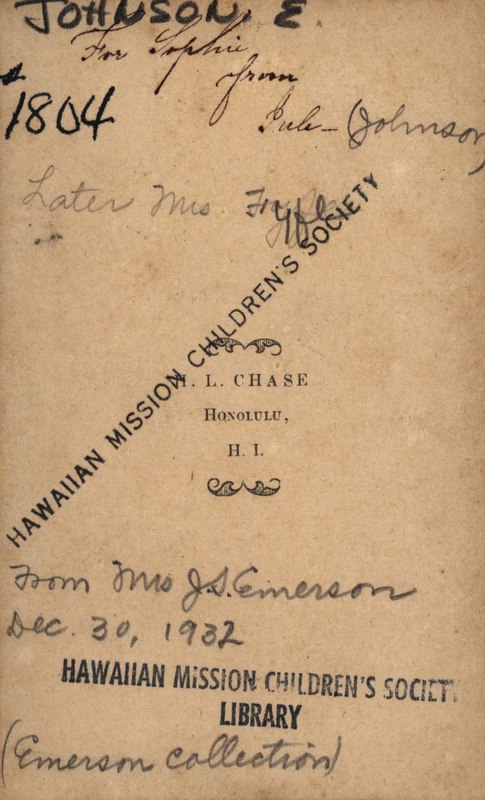 JOHNSON, E.
For Sophie
from
1804
Jule - (Johnson)
Later Mrs
HAWAIIAN MISSION CHILDREN'S SOCIETY
H. L. CHASE
HONOLULU,
H. I.
From Mrs J.S. Emerson
Dec. 30, 1932
HAWAIIAN MISSION CHILDREN'S SOCIETY
LIBRARY
(Emerson collection)